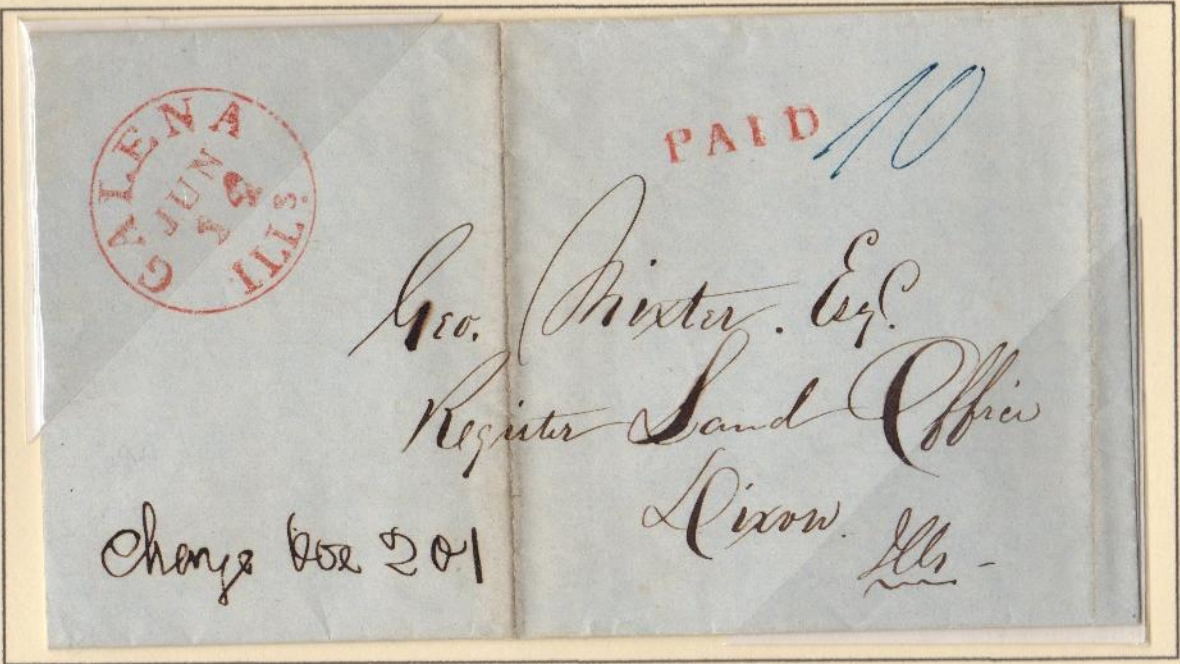 GALENA
JUN
ILLS.
PAID 10
Geo. Mixter. Esq.
Register Land Office
Dixon.
Ills -
Charge Box 201